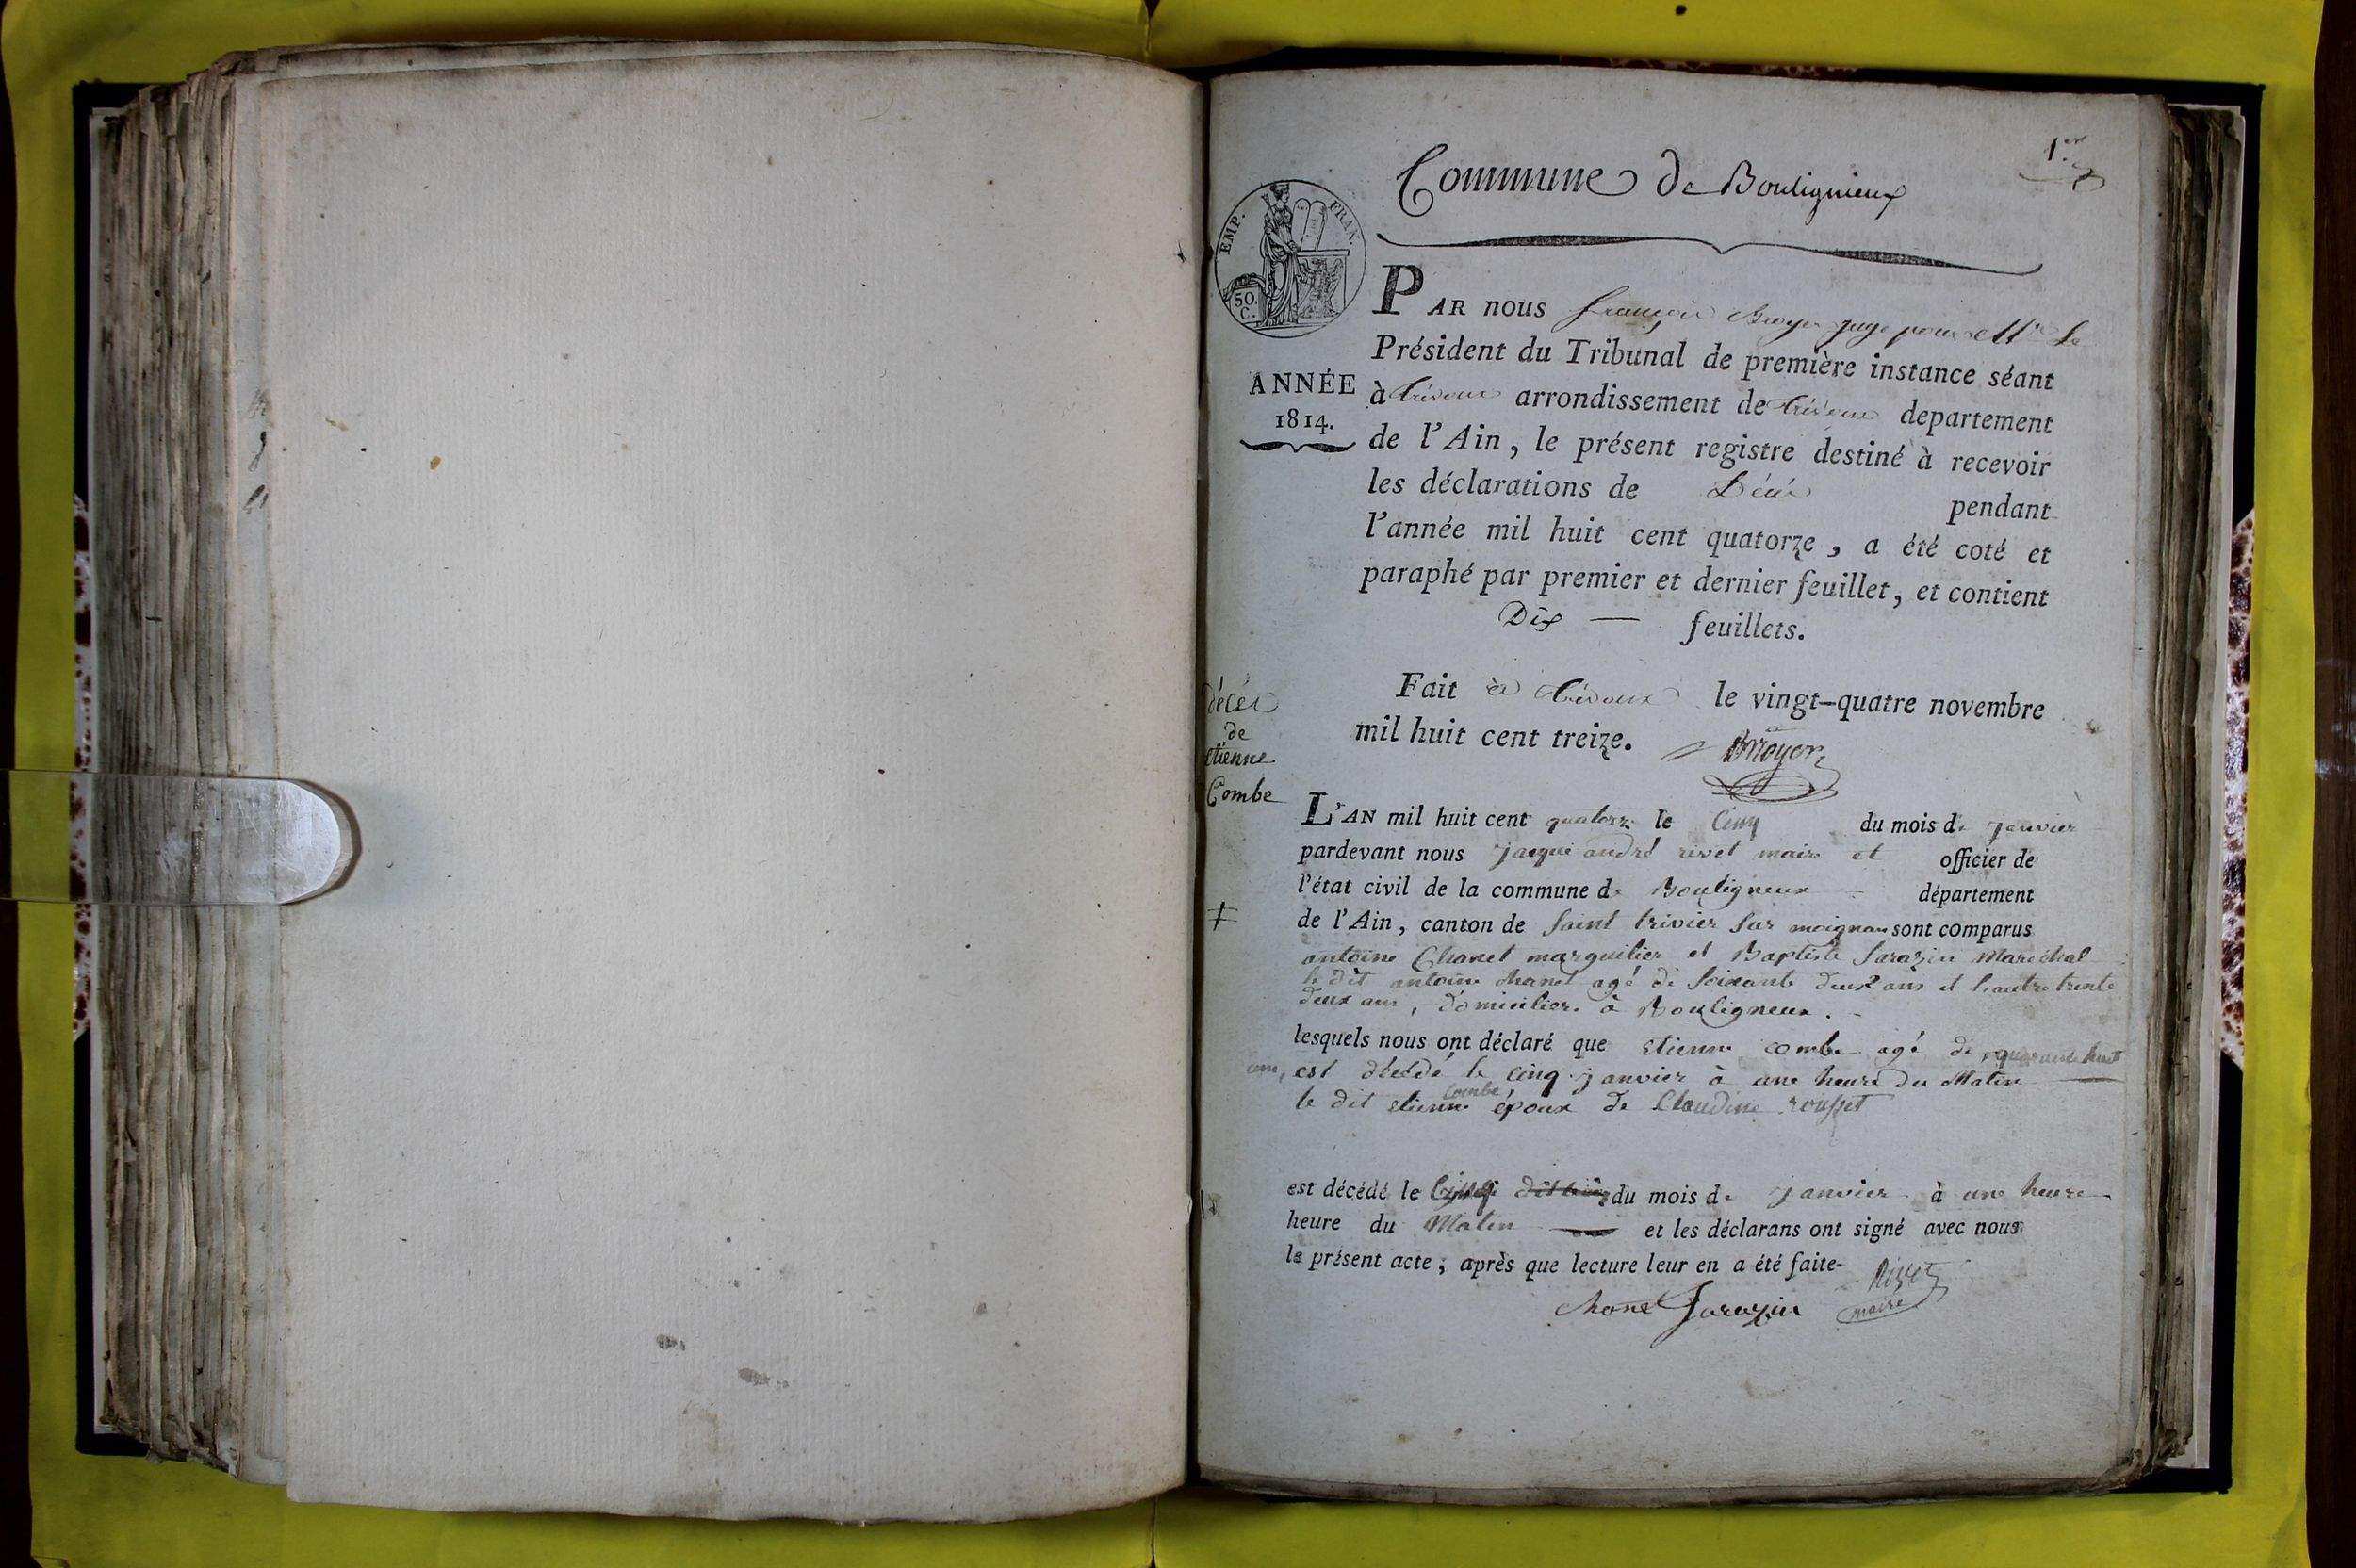 1.er
Commune de Boulignieux
EMP. FRAN.
50.
C.
ANNÉE
1814.
PAR nous françois Broyer juge pour Mr. le
Président du Tribunal de première instance séant
à trévoux arrondissement de trévoux departement
de l'Ain, le présent registre destiné à recevoir
les déclarations de Décés pendant
l'année mil huit cent quatorze, a été coté et
paraphé par premier et dernier feuillet, et contient
Dix — feuillets.
Fait à trévoux le vingt-quatre novembre
mil huit cent treize.
Broyer
décés
de
etienne
Combe
L'AN mil huit cent quatorze le Cinq du mois de janvier
pardevant nous jacque andré rivet maire et officier de
l'état civil de la commune de Bouligneux département
de l'Ain, canton de Saint trivier sur moignan sont comparus
antoine Chanel marguilier et Baptiste Sarazin Maréchal
le dit antoine chanel agé de soixante deux ans et l'autre trente
deux ans, domicilier à Bouligneux.
lesquels nous ont déclaré que etienne combe agé de quarante huit
ans, est décédé le cinq janvier à une heure du Matin
le dit etienne Combe, époux de Claudine rousset
est décédé le Cinq du mois de janvier à une heure
heure du Matin et les déclarans ont signé avec nous
le présent acte; après que lecture leur en a été faite.
Chanel Sarazin Rivet
maire